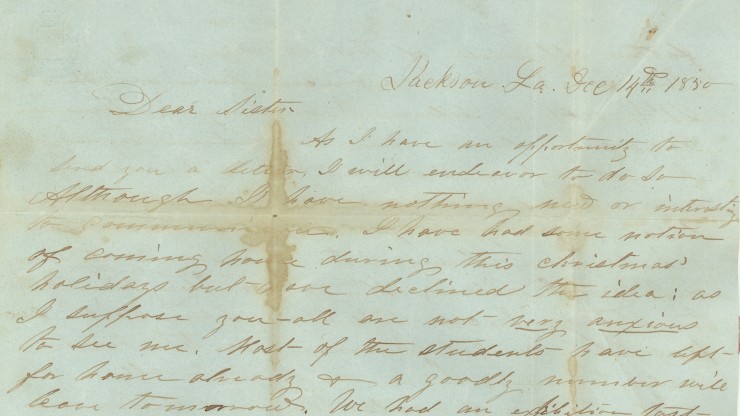 Jackson La. Dec 14th 1850
Dear Sister
As I have an opportunity to
send you a letter, I will endeavor to do so
Although I have nothing new or interesting
to communicate. I have had some notion
of coming home during this christmas'
holidays but have declined the idea; as
I suppose you-all are not very anxious
to see me. Most of the students have left-
for home already & a goodly number will
leave tomorrow. We had an exhibition last